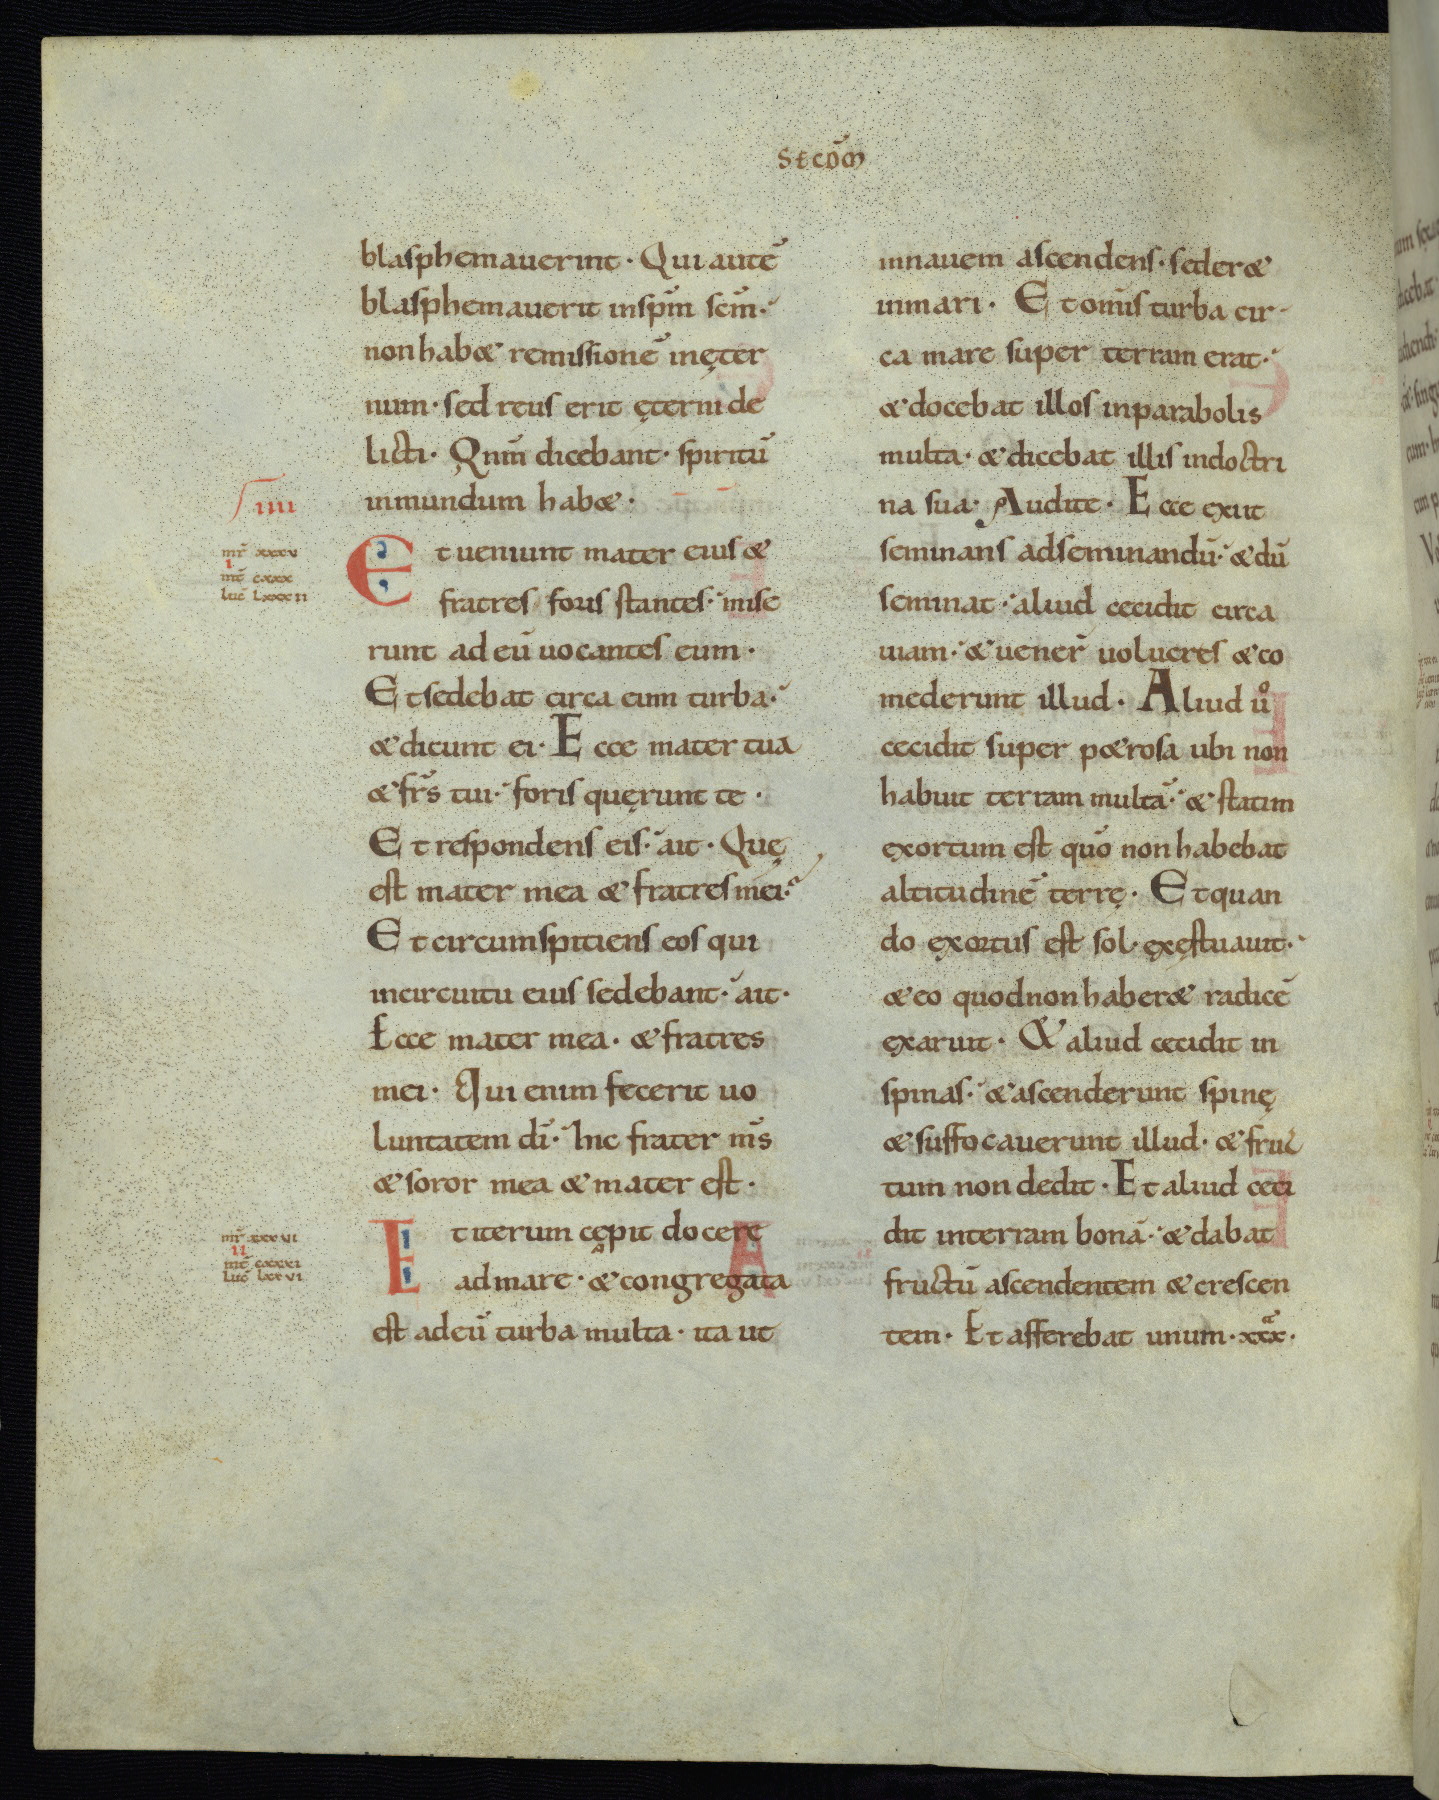 Secdm
blasphemauerint · Qui autē
blasphemauerit inspm̄ scm̄ ·
non habet remissionē inęter
num · sed reus erit ęterni de
licti · Qnm̄ dicebant · spiritū
inmundum habet ·
IIII
mr̄ xxxv
I
mt̄ cxxx
luc̄ lxxxii
Et ueniunt mater eius et
fratres foris stantes · mise
runt ad eū uocantes eum ·
Et sedebat circa eum turba ·
et dicunt ei · Ecce mater tua
et frs̄ tui · foris quęrunt te ·
Et respondens eis · ait · Quę
est mater mea et fratres mei ·
Et circumspiciens eos qui
incircuitu eius sedebant · ait ·
Ecce mater mea · et fratres
mei · Qui enim fecerit uo
luntatem dī · hic frater ms̄
et soror mea et mater est ·
mr̄ xxxvi
II
mt̄ cxxxi
luc̄ lxxvi
Et iterum cępit docere
ad mare · et congregata
est ad eū turba multa · ita ut
innauem ascendens · sederet
inmari · Et omīs turba cir
ca mare super terram erat ·
et docebat illos inparabolis
multa · et dicebat illis indoctri
na sua · Audite · Ecce exiit
seminans adseminandū · et dū
seminat · aliud cecidit circa
uiam · et uener̄ uolucres et co
mederunt illud · Aliud uº
cecidit super petrosa ubi non
habuit terram multā · et statim
exortum est quō non habebat
altitudinē terrę · Et quan
do exortus est sol · exęstuauit ·
et eo quod non haberet radicē
exaruit · Et aliud cecidit in
spinas · et ascenderunt spinę
et suffocauerunt illud · et fruc
tum non dedit · Et aliud ceci
dit interram bonā · et dabat
fructū ascendentem et crescen
tem · Et afferebat unum · xxxᵃ ·